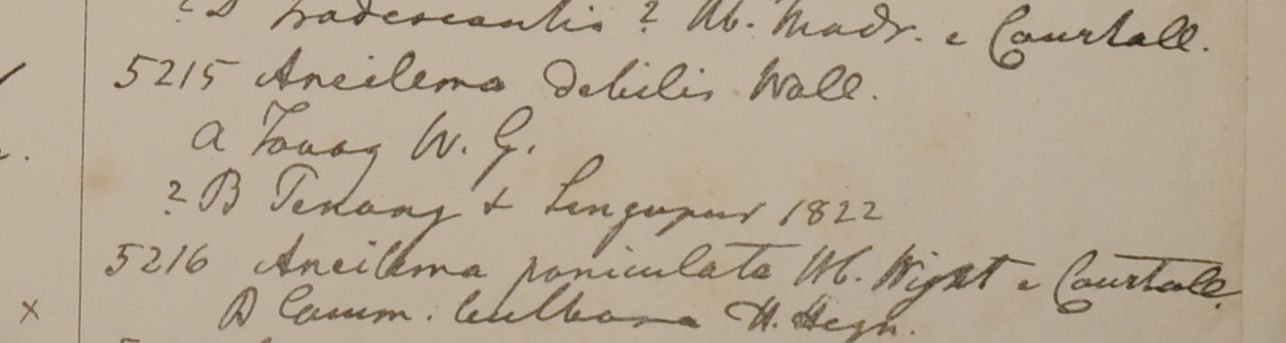 ?B Tradescantis? Hb. Madr. e Courtall.
5215 Aneilema debilis Wall.
a Touag W. G.
?B Penang & Singapur 1822
5216 Aneilema paniculata Hb. Wight e Courtall.
B Comm. bulbosa H. Heyn.
x